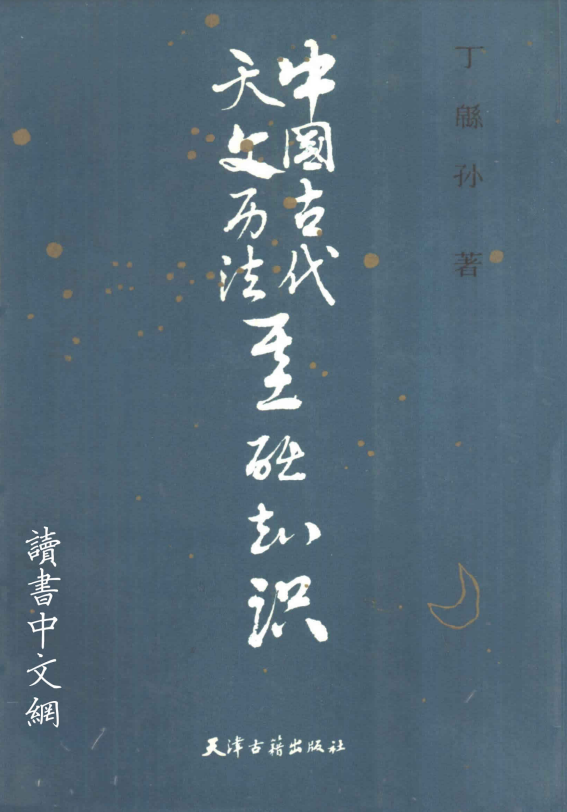 丁緜孙 著
中國古代
天文历法
基础知识
讀書中文網
天津古籍出版社